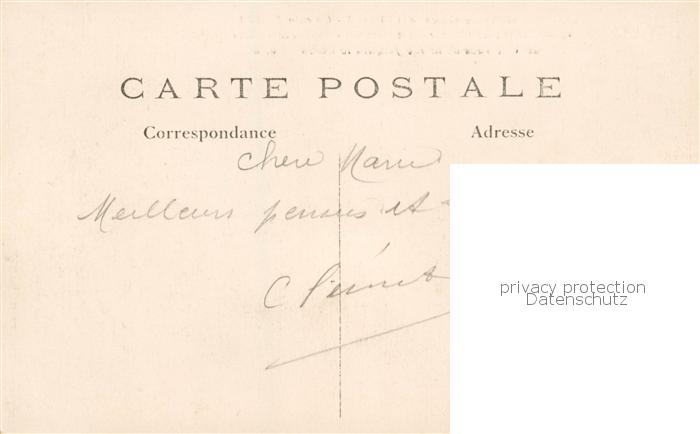 CARTE POSTALE
Correspondance Adresse
Chere Marie
Meilleurs pensees et
C
privacy protection
Datenschutz